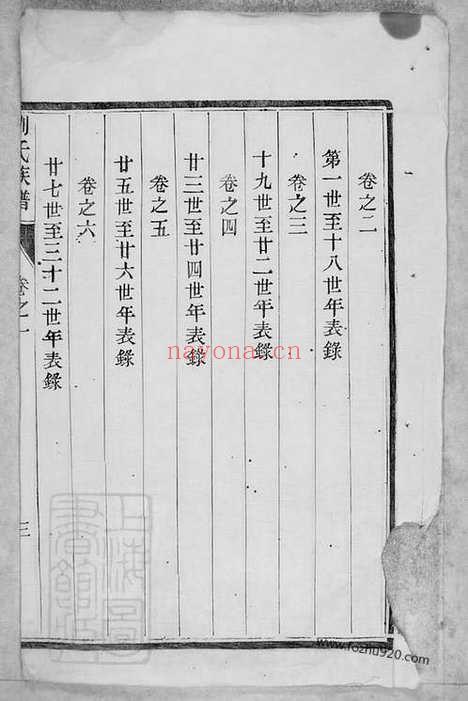 卷之二
第一世至十八世年表錄
卷之三
十九世至廿二世年表錄
卷之四
廿三世至廿四世年表錄
卷之五
廿五世至廿六世年表錄
卷之六
廿七世至三十二世年表錄
劉氏族譜
卷之一
三
nayona.cn
上海圖書館藏
www.fozhu920.com